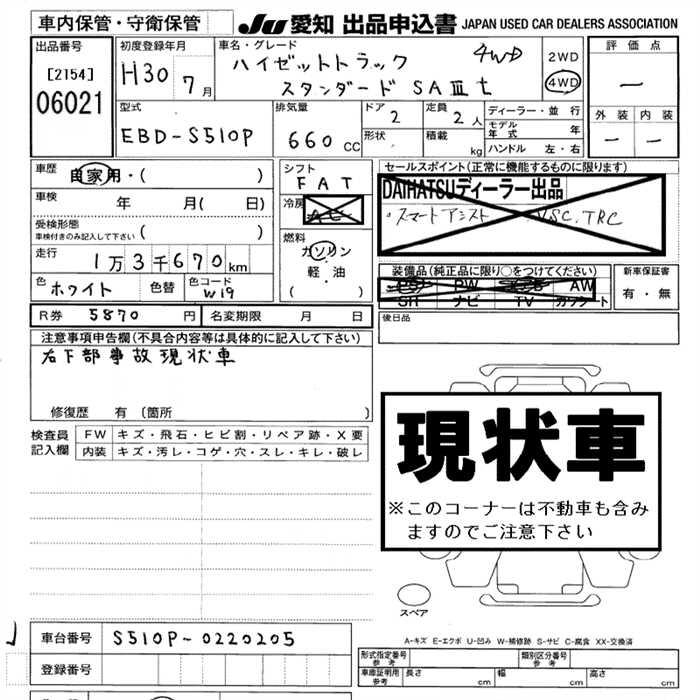 車内保管・守衛保管 JU 愛知 出品申込書 JAPAN USED CAR DEALERS ASSOCIATION
出品番号 初度登録年月 車名・グレード 評価点
[2154] H30 7月 ハイゼットトラック 4WD 2WD
06021 スタンダード SAⅢt 4WD ー
型式 排気量 ドア 定員 ディーラー・並行 外装 内装
EBD-S510P 660 cc 2 2人 モデル年式 年
形状 積載 kg ハンドル 左・右 ー ー
車歴 自家用・( ) シフト FAT セールスポイント(正常に機能するものに限ります)
車検 年 月( 日) 冷房 AC DAIHATSUディーラー出品
受検形態 ( ) ・スマートアシスト VSC.TRC
車検付きのみ記入して下さい 燃料
走行 1万3千670km ガソリン
軽・油
( )
装備品(純正品に限り○をつけてください) 新車保証書
色 ホワイト 色替 色コード W19 PS PW AW 有・無
SR ナビ TV カワシート
R券 5870円 名変期限 月 日 後日品
注意事項申告欄(不具合内容等は具体的に記入して下さい)
右下部事故現状車
修復歴 有 (箇所 )
検査員記入欄 FW キズ・飛石・ヒビ割・リペア跡・X要
内装 キズ・汚レ・コゲ・穴・スレ・キレ・破レ
現状車
※このコーナーは不動車も含み
ますのでご注意下さい
スペア
A-キズ E-エクボ U-凹み W-補修跡 S-サビ C-腐食 XX-交換済
車台番号 S510P-0220205
登録番号
型式指定番号 参考 類別区分番号 参考
車庫証明用 参考 長さ cm 幅 cm 高さ cm